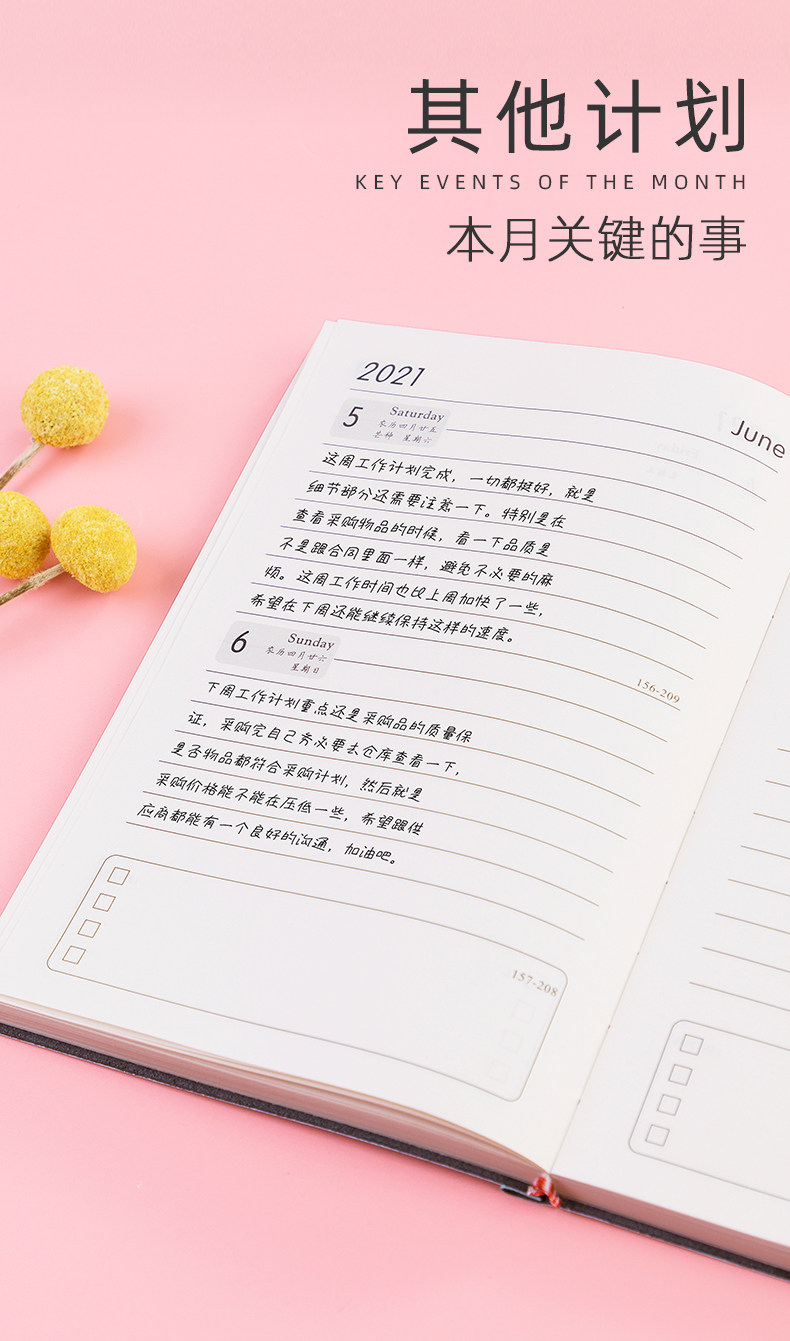 其他计划
KEY EVENTS OF THE MONTH
本月关键的事
2021
June
5
Saturday
农历四月廿五
芒种 星期六
这周工作计划完成，一切都挺好，就是
细节部分还需要注意一下。特别是在
查看采购物品的时候，看一下品质是
不是跟合同里面一样，避免不必要的麻
烦。这周工作时间也比上周加快了一些，
希望在下周还能继续保持这样的速度。
156-209
6
Sunday
农历四月廿六
星期日
下周工作计划重点还是采购品的质量保
证，采购完自己务必要去仓库查看一下，
是否物品都符合采购计划，然后就是
采购价格能不能在压低一些，希望跟供
应商都能有一个良好的沟通，加油吧。
157-208